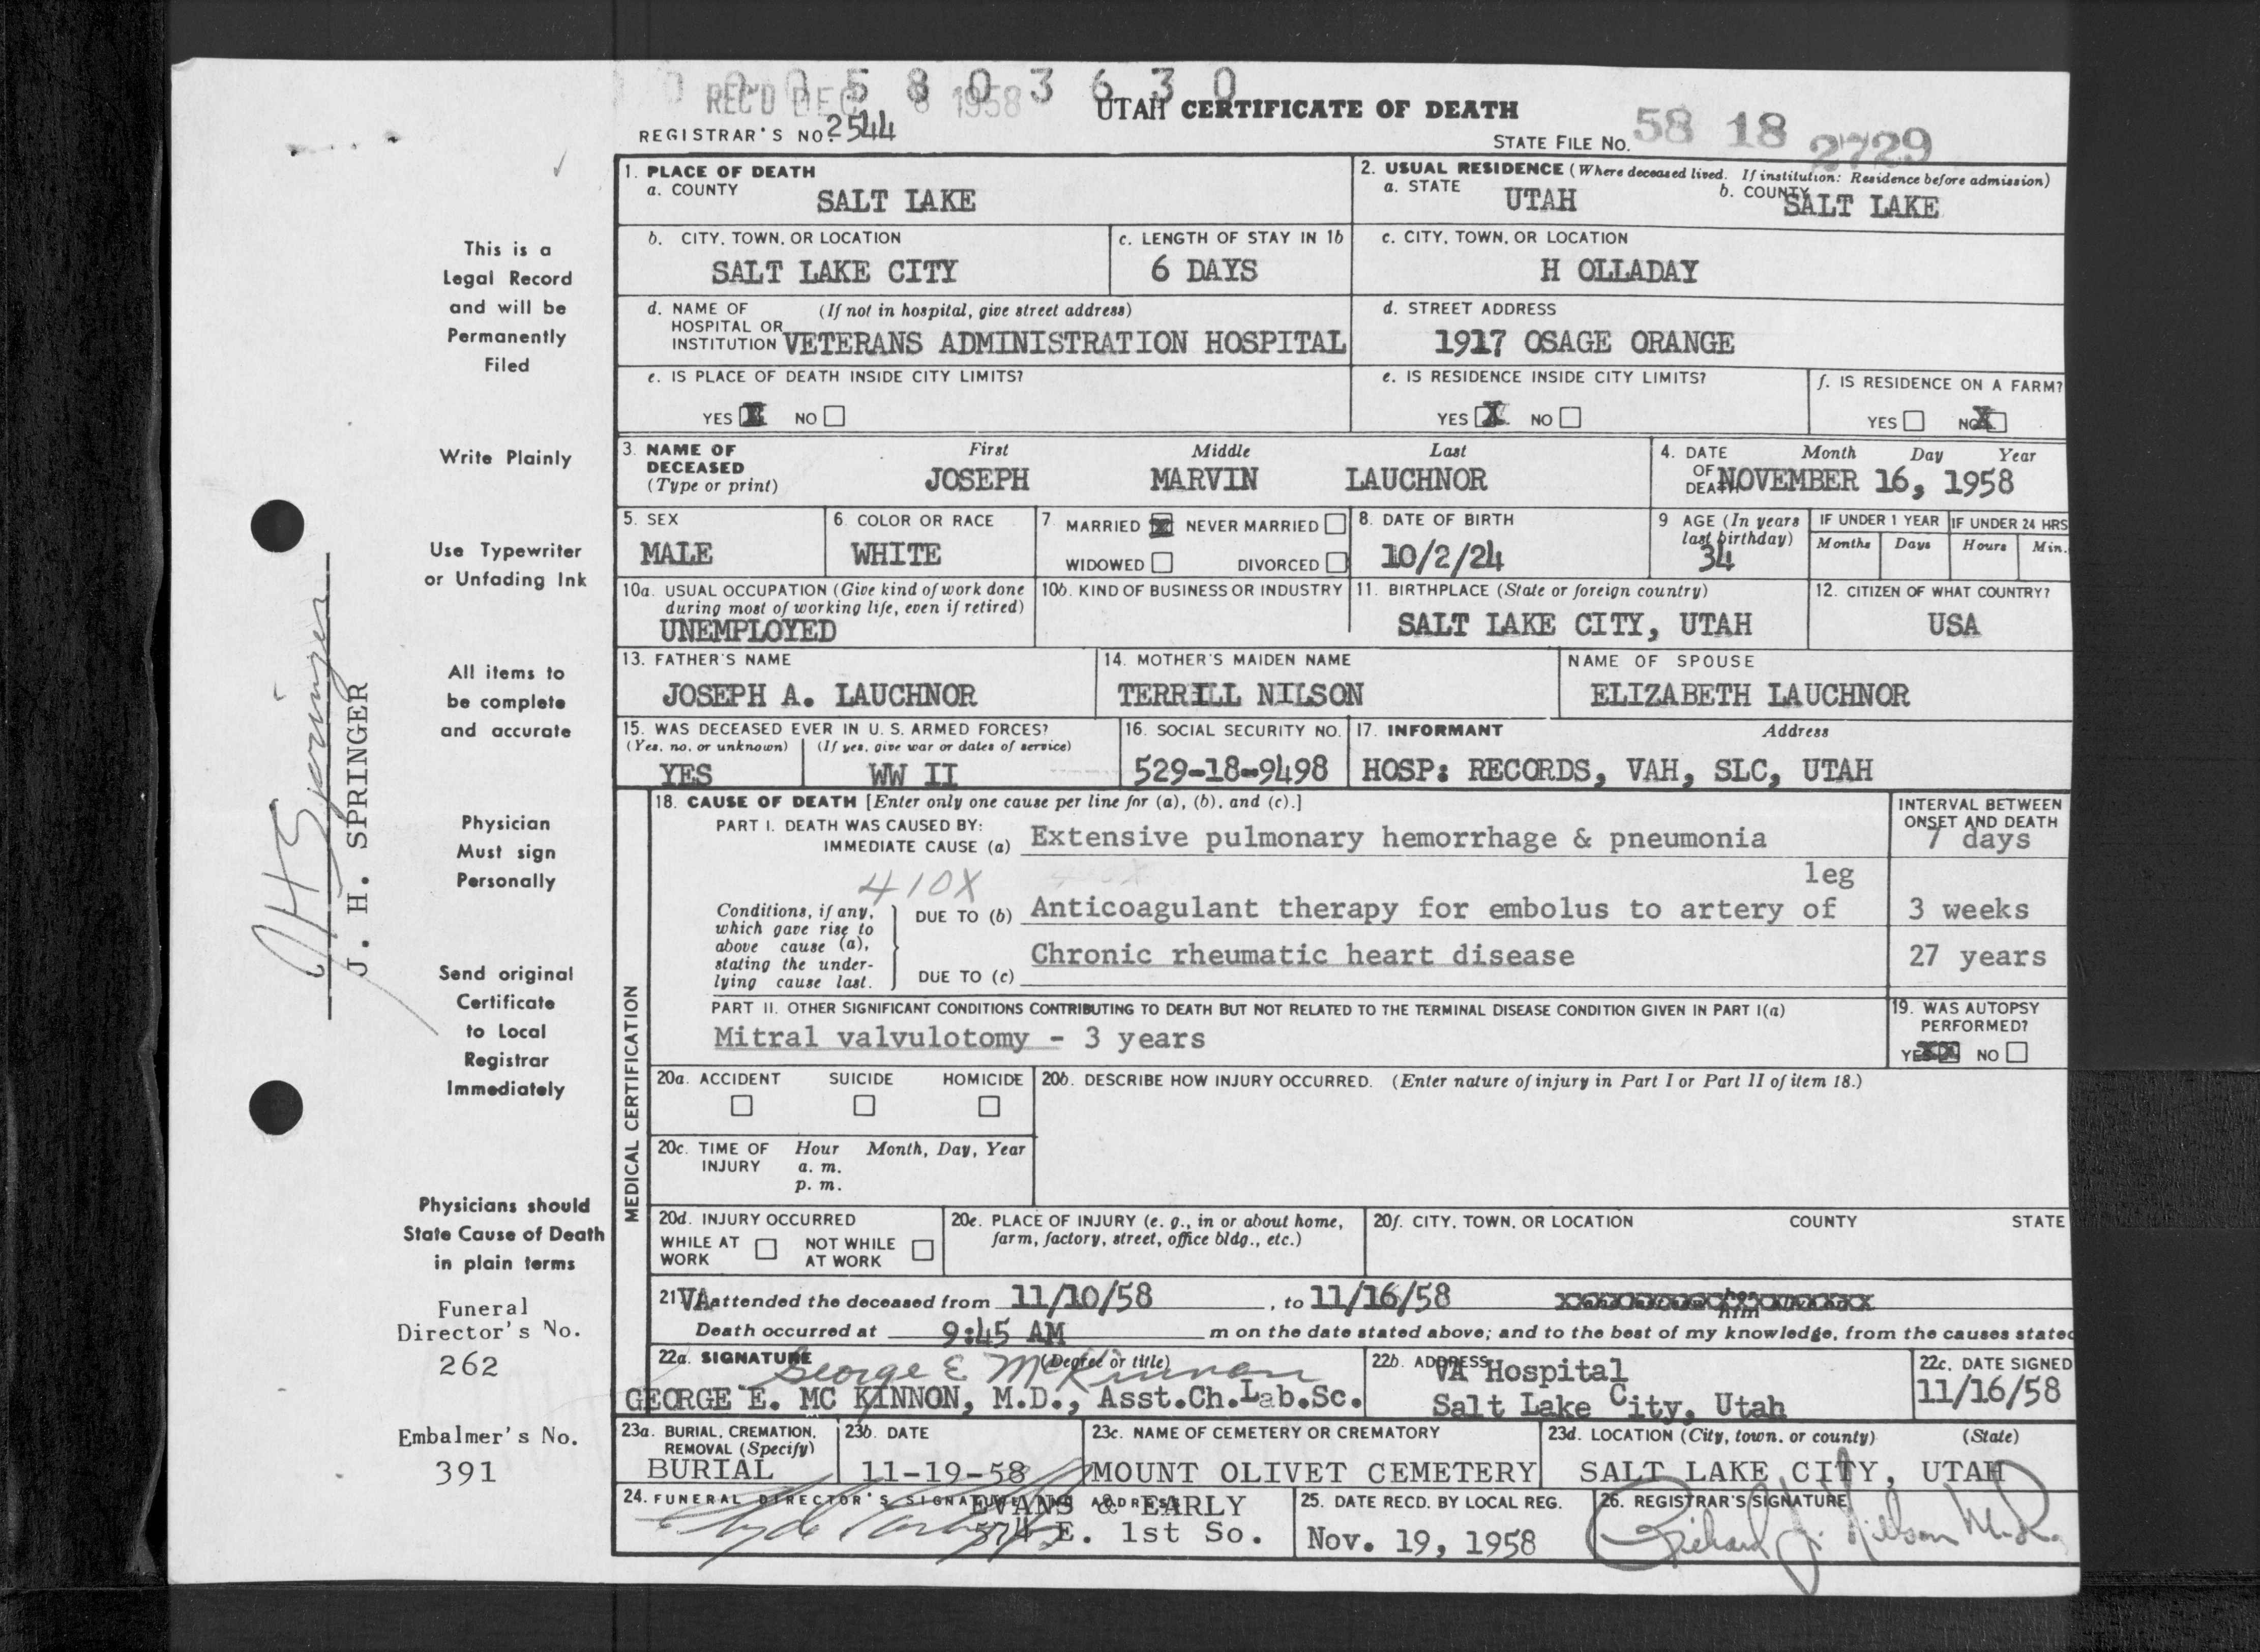 0 0 0 5 8 0 3 6 3 0
REC'D DEC 8 1958
UTAH CERTIFICATE OF DEATH
REGISTRAR'S NO. 2544
STATE FILE NO. 58 18 2729
1. PLACE OF DEATH
a. COUNTY
SALT LAKE
2. USUAL RESIDENCE (Where deceased lived. If institution: Residence before admission)
a. STATE UTAH b. COUNTY SALT LAKE
b. CITY, TOWN, OR LOCATION
SALT LAKE CITY
c. LENGTH OF STAY IN 1b
6 DAYS
c. CITY, TOWN, OR LOCATION
H OLLADAY
d. NAME OF (If not in hospital, give street address)
HOSPITAL OR
INSTITUTION VETERANS ADMINISTRATION HOSPITAL
d. STREET ADDRESS
1917 OSAGE ORANGE
e. IS PLACE OF DEATH INSIDE CITY LIMITS?
YES X NO
e. IS RESIDENCE INSIDE CITY LIMITS?
YES X NO
f. IS RESIDENCE ON A FARM?
YES NO X
3. NAME OF
DECEASED
(Type or print)
First Middle Last
JOSEPH MARVIN LAUCHNOR
4. DATE Month Day Year
OF
DEATH NOVEMBER 16, 1958
5. SEX
MALE
6. COLOR OR RACE
WHITE
7. MARRIED X NEVER MARRIED
WIDOWED DIVORCED
8. DATE OF BIRTH
10/2/24
9. AGE (In years
last birthday)
34
IF UNDER 1 YEAR
Months Days
IF UNDER 24 HRS
Hours Min.
10a. USUAL OCCUPATION (Give kind of work done
during most of working life, even if retired)
UNEMPLOYED
10b. KIND OF BUSINESS OR INDUSTRY
11. BIRTHPLACE (State or foreign country)
SALT LAKE CITY, UTAH
12. CITIZEN OF WHAT COUNTRY?
USA
13. FATHER'S NAME
JOSEPH A. LAUCHNOR
14. MOTHER'S MAIDEN NAME
TERRILL NILSON
NAME OF SPOUSE
ELIZABETH LAUCHNOR
15. WAS DECEASED EVER IN U. S. ARMED FORCES?
(Yes, no, or unknown) (If yes, give war or dates of service)
YES WW II
16. SOCIAL SECURITY NO.
529-18-9498
17. INFORMANT Address
HOSP: RECORDS, VAH, SLC, UTAH
MEDICAL CERTIFICATION
18. CAUSE OF DEATH [Enter only one cause per line for (a), (b), and (c).]
INTERVAL BETWEEN
ONSET AND DEATH
PART I. DEATH WAS CAUSED BY:
IMMEDIATE CAUSE (a) Extensive pulmonary hemorrhage & pneumonia 7 days
410X
leg
Conditions, if any,
which gave rise to
above cause (a),
stating the under-
lying cause last.
DUE TO (b) Anticoagulant therapy for embolus to artery of 3 weeks
DUE TO (c) Chronic rheumatic heart disease 27 years
PART II. OTHER SIGNIFICANT CONDITIONS CONTRIBUTING TO DEATH BUT NOT RELATED TO THE TERMINAL DISEASE CONDITION GIVEN IN PART I(a)
Mitral valvulotomy - 3 years
19. WAS AUTOPSY
PERFORMED?
YES XX NO
20a. ACCIDENT SUICIDE HOMICIDE
20b. DESCRIBE HOW INJURY OCCURRED. (Enter nature of injury in Part I or Part II of item 18.)
20c. TIME OF Hour Month, Day, Year
INJURY a. m.
p. m.
20d. INJURY OCCURRED
WHILE AT NOT WHILE
WORK AT WORK
20e. PLACE OF INJURY (e. g., in or about home,
farm, factory, street, office bldg., etc.)
20f. CITY, TOWN, OR LOCATION COUNTY STATE
21. VA attended the deceased from 11/10/58, to 11/16/58 her
him
Death occurred at 9:45 AM m on the date stated above; and to the best of my knowledge, from the causes stated
22a. SIGNATURE (Degree or title)
George E McKinnon
GEORGE E. MC KINNON, M.D., Asst.Ch.Lab.Sc.
22b. ADDRESS
VA Hospital
Salt Lake City, Utah
22c. DATE SIGNED
11/16/58
23a. BURIAL, CREMATION,
REMOVAL (Specify)
BURIAL
23b. DATE
11-19-58
23c. NAME OF CEMETERY OR CREMATORY
MOUNT OLIVET CEMETERY
23d. LOCATION (City, town, or county) (State)
SALT LAKE CITY, UTAH
24. FUNERAL DIRECTOR'S SIGNATURE AND ADDRESS
EVANS & EARLY
574 E. 1st So.
25. DATE RECD. BY LOCAL REG.
Nov. 19, 1958
26. REGISTRAR'S SIGNATURE
This is a
Legal Record
and will be
Permanently
Filed
Write Plainly
Use Typewriter
or Unfading Ink
All items to
be complete
and accurate
Physician
Must sign
Personally
Send original
Certificate
to Local
Registrar
Immediately
Physicians should
State Cause of Death
in plain terms
Funeral
Director's No.
262
Embalmer's No.
391
JH Springer
J. H. SPRINGER